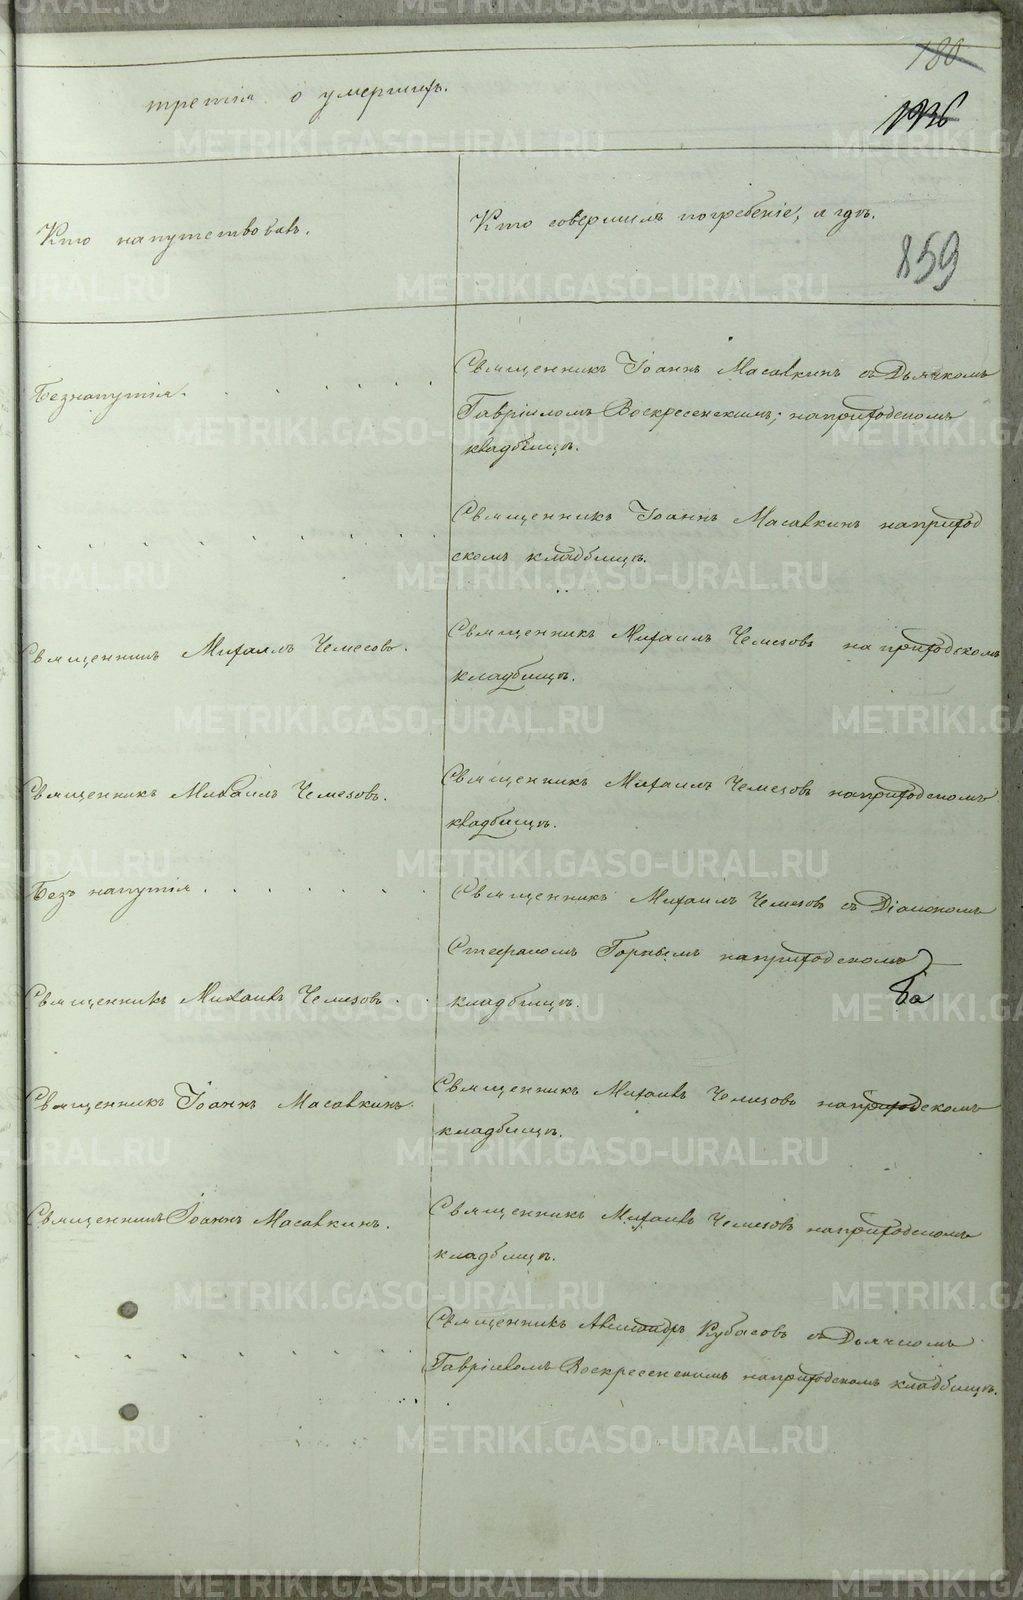 180
третія о умершихъ.
Кто напутствовалъ.
Кто совершилъ погребеніе, и гдѣ.
859
Безнапутія. . . . . .
Священникъ Іоаннъ Масалкинъ съ Дьячкомъ
Гавріиломъ Воскресенскимъ; наприходскомъ
кладбищѣ.
. . . . . . . . .
Священникъ Іоаннъ Масалкинъ наприход
скомъ кладбищѣ.
Священникъ Михаилъ Чемесовъ.
Священникъ Михаилъ Чемезовъ на приходскомъ
кладбищѣ.
Священникъ Михаилъ Чемезовъ.
Священникъ Михаилъ Чемезовъ наприходскомъ
кладбищѣ.
Безъ напутія . . . . . .
Священникъ Михаилъ Чемезовъ съ Діакономъ
Стефаномъ Горнымъ наприходскомъ
кладбищѣ.
Священникъ Михаилъ Чемезовъ . .
Священникъ Іоаннъ Масалкинъ.
Священникъ Михаилъ Чемезовъ наприходскомъ
кладбищѣ.
Священникъ Іоаннъ Масалкинъ.
Священникъ Михаилъ Чемезовъ наприходскомъ
кладбищѣ.
. . . . . . . . .
Священникъ Александръ Кубасовъ съ Дьячкомъ
Гавріиломъ Воскресенскимъ наприходскомъ кладбищѣ.
METRIKI.GASO-URAL.RU